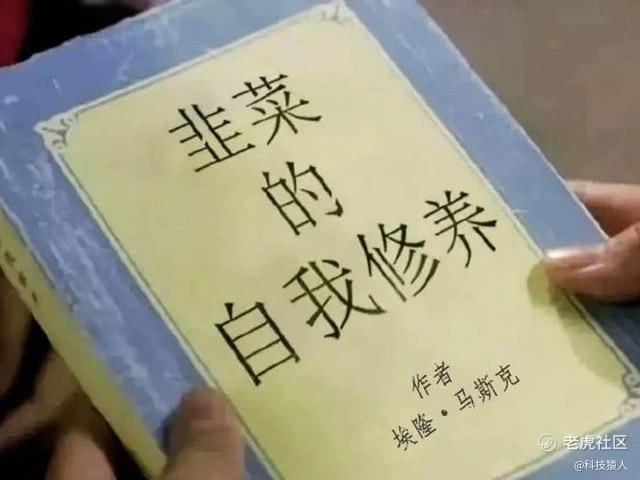 韭菜
的
自我修养
作者
埃隆·马斯克
老虎社区
@科技猿人